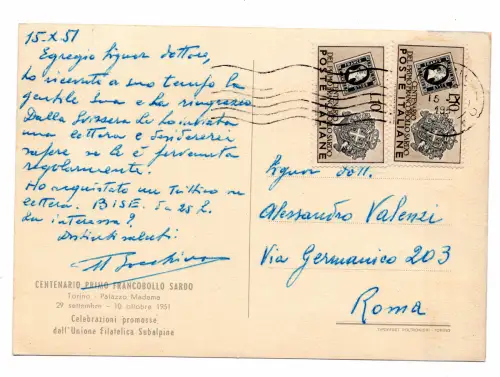 15.X.51
Egregio Signor dottore,
ho ricevuto a suo tempo la
gentile Sua e la ringrazio
Dalla Svizzera Le ho inviato
una lettera e desidererei
sapere se Le è pervenuta
regolarmente.
Ho acquistato un
lettera. BISE. 5 a 25 L.
La interessa?
Distinti saluti.
CENTENARIO PRIMO FRANCOBOLLO SARDO
Torino - Palazzo Madama
29 settembre - 10 ottobre 1951
Celebrazioni promosse
dall'Unione Filatelica Subalpina
POSTE ITALIANE
POSTE ITALIANE
Signor dott.
Alessandro Valenzi
Via Germanico 203
Roma